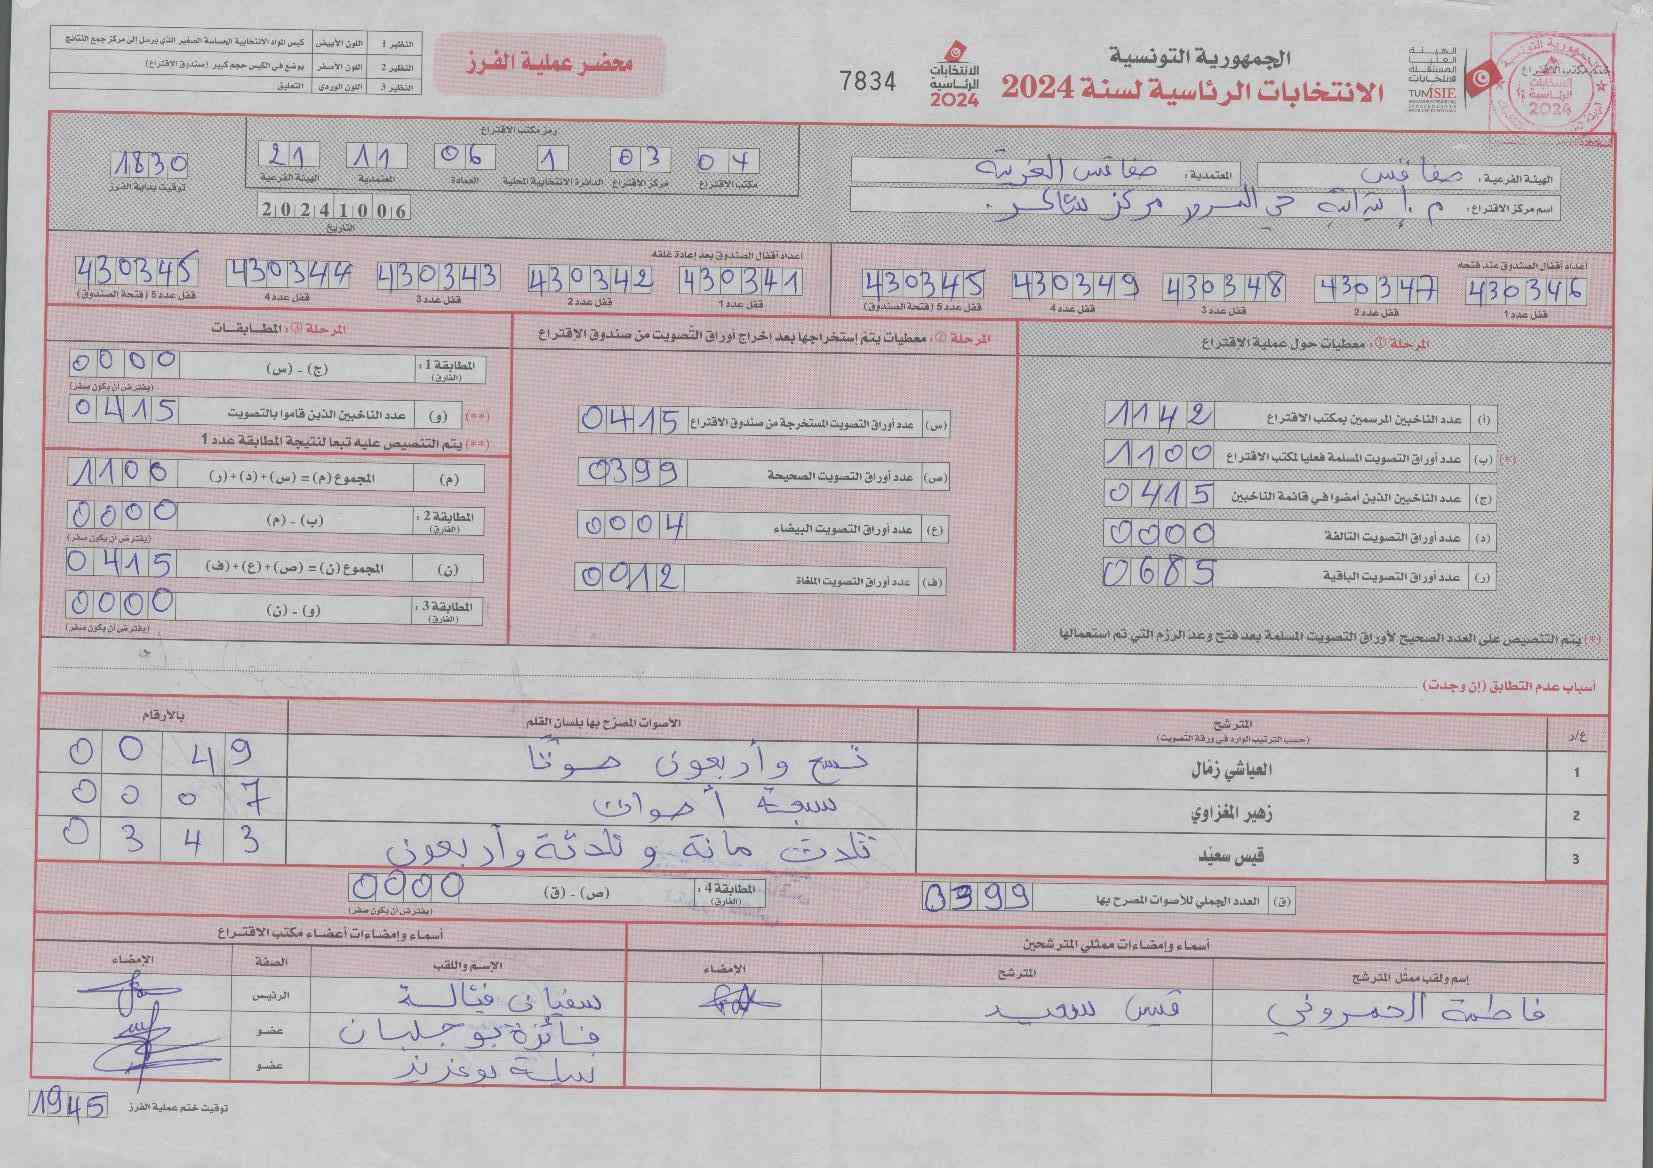 الجمهورية التونسية
الانتخابات الرئاسية لسنة 2024
الهيئة العليا المستقلة للانتخابات
TUNISIE
الانتخابات الرئاسية 2024
7834
محضر عملية الفرز
النظير 1 اللون الأبيض كيس المواد الانتخابية الحساسة الصغير الذي يرسل إلى مركز جمع النتائج
النظير 2 اللون الأصفر يوضع في الكيس حجم كبير (صندوق الاقتراع)
النظير 3 اللون الوردي التعليق
الهيئة الفرعية: صفاقس المعتمدية: صفاقس الغربية
اسم مركز الاقتراع: مركز شاكر
رمز مكتب الاقتراع
04 03 1 06 11 21
مكتب الاقتراع مركز الاقتراع الدائرة الانتخابية المحلية العمادة المعتمدية الهيئة الفرعية
20241006
التاريخ
1830
توقيت بداية الفرز
أعداد أقفال الصندوق عند فتحه
430346 430347 430348 430349 430345
قفل عدد 1 قفل عدد 2 قفل عدد 3 قفل عدد 4 قفل عدد 5 (فتحة الصندوق)
أعداد أقفال الصندوق بعد إعادة غلقه
430341 430342 430343 430344 430345
قفل عدد 1 قفل عدد 2 قفل عدد 3 قفل عدد 4 قفل عدد 5 (فتحة الصندوق)
المرحلة ①: معطيات حول عملية الاقتراع
(أ) عدد الناخبين المرسمين بمكتب الاقتراع 1142
(*) (ب) عدد أوراق التصويت المسلمة فعليا لمكتب الاقتراع 1100
(ج) عدد الناخبين الذين أمضوا في قائمة الناخبين 0415
(د) عدد أوراق التصويت التالفة 0000
(ر) عدد أوراق التصويت الباقية 0685
(*) يتم التنصيص على العدد الصحيح لأوراق التصويت المسلمة بعد فتح وعد الرزم التي تم استعمالها
المرحلة ②: معطيات يتم إستخراجها بعد إخراج أوراق التصويت من صندوق الاقتراع
(س) عدد أوراق التصويت المستخرجة من صندوق الاقتراع 0415
(ص) عدد أوراق التصويت الصحيحة 0399
(ع) عدد أوراق التصويت البيضاء 0004
(ف) عدد أوراق التصويت الملغاة 0012
المرحلة ③: المطابقات
المطابقة 1: (الفارق) (ج) - (س) 0000
(يفترض أن يكون صفر)
(**) (و) عدد الناخبين الذين قاموا بالتصويت 0415
(**) يتم التنصيص عليه تبعا لنتيجة المطابقة عدد 1
(م) المجموع (م) = (س)+(د)+(ر) 1100
المطابقة 2: (الفارق) (ب) - (م) 0000
(يفترض أن يكون صفر)
(ن) المجموع (ن) = (ص)+(ع)+(ف) 0415
المطابقة 3: (الفارق) (و) - (ن) 0000
(يفترض أن يكون صفر)
أسباب عدم التطابق (إن وجدت)
ع/ر المترشح (حسب الترتيب الوارد في ورقة التصويت) الأصوات المصرح بها بلسان القلم بالأرقام
1 العياشي زمّال تسع وأربعون صوتا 0049
2 زهير المغزاوي سبعة أصوات 0007
3 قيس سعيّد ثلاث مائة وثلاثة وأربعون 0343
(ق) العدد الجملي للأصوات المصرح بها 0399
المطابقة 4: (الفارق) (ص) - (ق) 0000
(يفترض أن يكون صفر)
أسماء وإمضاءات ممثلي المترشحين
إسم ولقب ممثل المترشح المترشح الإمضاء
فاطمة الحمروني قيس سعيد
أسماء وإمضاءات أعضاء مكتب الاقتراع
الإسم واللقب الصفة الإمضاء
سفيان فيالة الرئيس
فائزة بوجلبان عضو
نبيلة بوعزيز عضو
توقيت ختم عملية الفرز 1945